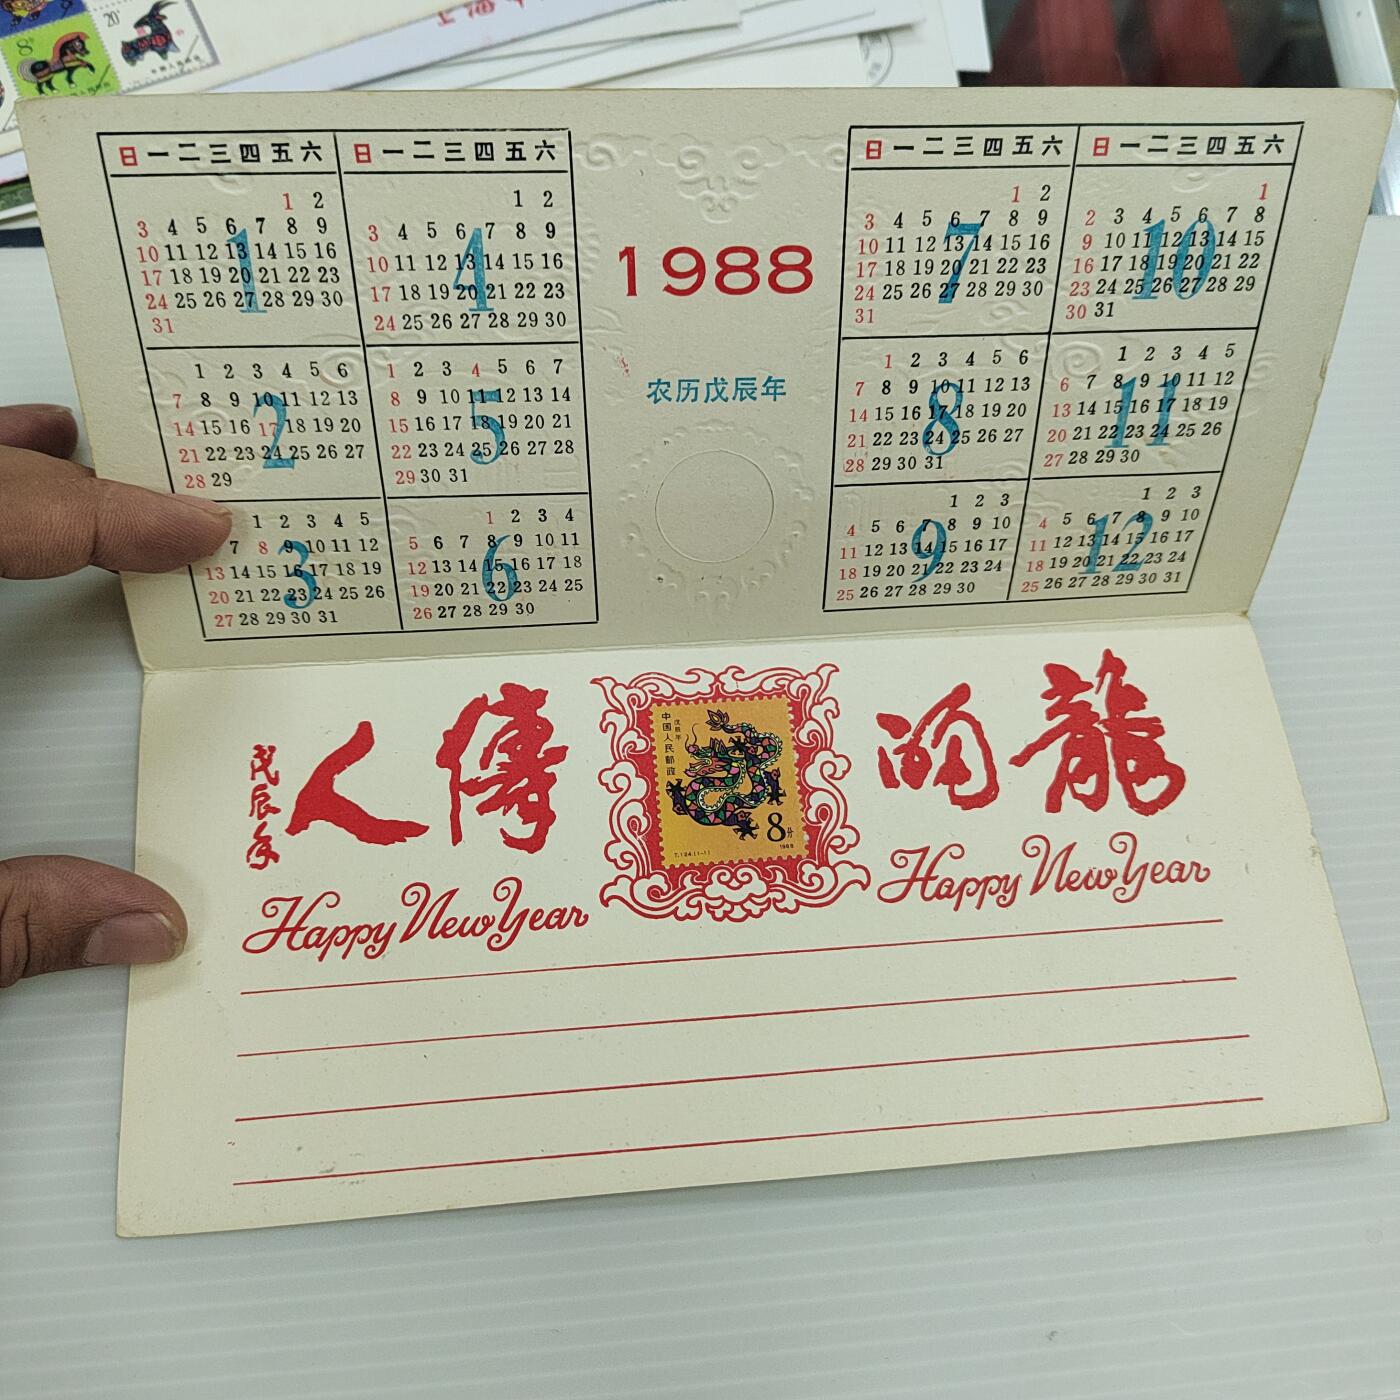 8分
20分
日 一 二 三 四 五 六
1 2
3 4 5 6 7 8 9
10 11 12 13 14 15 16
17 18 19 20 21 22 23
24 25 26 27 28 29 30
31
1
1 2 3 4 5 6
7 8 9 10 11 12 13
14 15 16 17 18 19 20
21 22 23 24 25 26 27
28 29
2
1 2 3 4 5
7 8 9 10 11 12
13 14 15 16 17 18 19
20 21 22 23 24 25 26
27 28 29 30 31
3
日 一 二 三 四 五 六
1 2
3 4 5 6 7 8 9
10 11 12 13 14 15 16
17 18 19 20 21 22 23
24 25 26 27 28 29 30
4
1 2 3 4 5 6 7
8 9 10 11 12 13 14
15 16 17 18 19 20 21
22 23 24 25 26 27 28
29 30 31
5
1 2 3 4
5 6 7 8 9 10 11
12 13 14 15 16 17 18
19 20 21 22 23 24 25
26 27 28 29 30
6
1988
农历戊辰年
日 一 二 三 四 五 六
1 2
3 4 5 6 7 8 9
10 11 12 13 14 15 16
17 18 19 20 21 22 23
24 25 26 27 28 29 30
31
7
1 2 3 4 5 6
7 8 9 10 11 12 13
14 15 16 17 18 19 20
21 22 23 24 25 26 27
28 29 30 31
8
1 2 3
4 5 6 7 8 9 10
11 12 13 14 15 16 17
18 19 20 21 22 23 24
25 26 27 28 29 30
9
日 一 二 三 四 五 六
1
2 3 4 5 6 7 8
9 10 11 12 13 14 15
16 17 18 19 20 21 22
23 24 25 26 27 28 29
30 31
10
1 2 3 4 5
6 7 8 9 10 11 12
13 14 15 16 17 18 19
20 21 22 23 24 25 26
27 28 29 30
11
1 2 3
4 5 6 7 8 9 10
11 12 13 14 15 16 17
18 19 20 21 22 23 24
25 26 27 28 29 30 31
12
龍的傳人
戊辰年
中国人民邮政
戊辰年
8分
T.124.(1-1) 1988
Happy New Year
Happy New Year